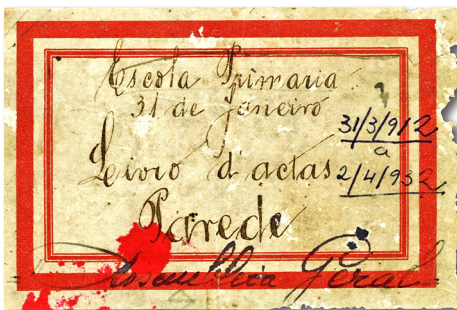 Escola Primaria
31 de Janeiro
31/3/912
a
Livro d'actas
2/4/932
Parede
Assembleia Geral